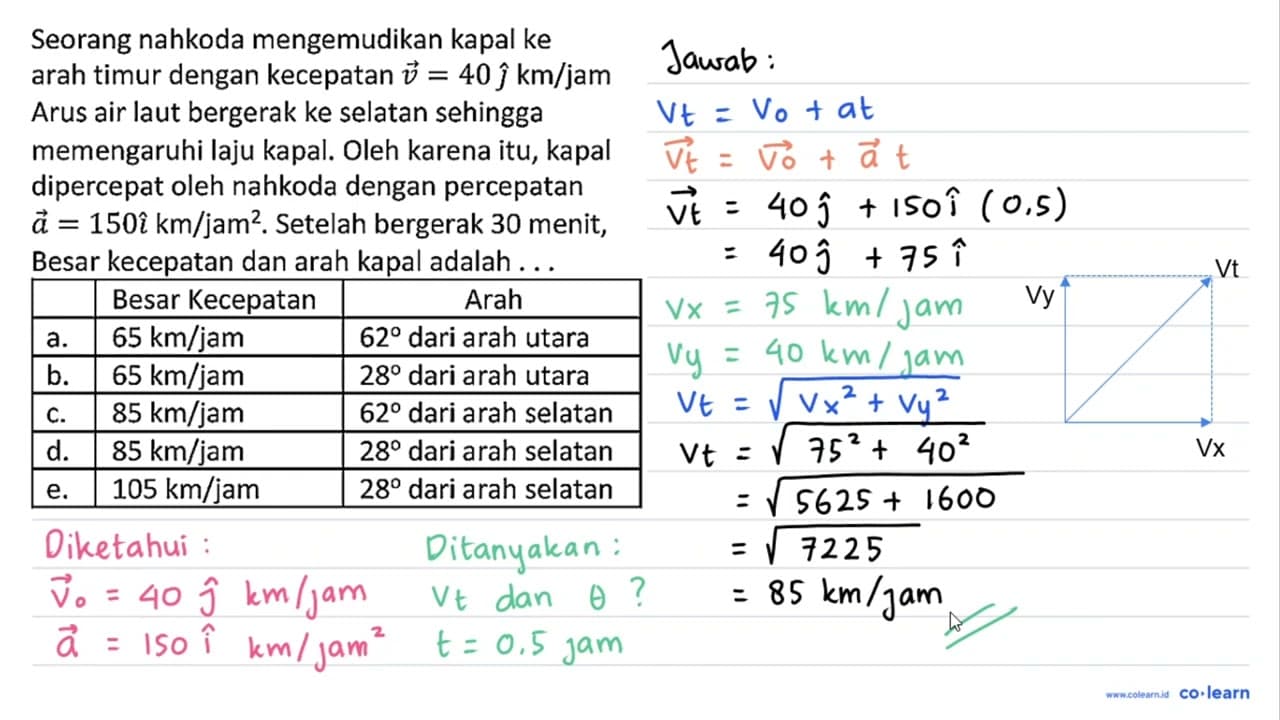 Seorang nahkoda mengemudikan kapal ke
arah timur dengan kecepatan v⃗ = 40 ĵ km/jam
Arus air laut bergerak ke selatan sehingga
memengaruhi laju kapal. Oleh karena itu, kapal
dipercepat oleh nahkoda dengan percepatan
a⃗ = 150î km/jam². Setelah bergerak 30 menit,
Besar kecepatan dan arah kapal adalah . . .
Besar Kecepatan Arah
a. 65 km/jam 62° dari arah utara
b. 65 km/jam 28° dari arah utara
c. 85 km/jam 62° dari arah selatan
d. 85 km/jam 28° dari arah selatan
e. 105 km/jam 28° dari arah selatan
Diketahui :
v⃗₀ = 40 ĵ km/jam
a⃗ = 150 î km/jam²
Ditanyakan :
Vt dan θ ?
t = 0.5 jam
Jawab :
Vt = V₀ + at
V⃗t = V⃗₀ + a⃗ t
V⃗t = 40 ĵ + 150 î (0.5)
= 40 ĵ + 75 î
Vx = 75 km/jam
Vy = 40 km/jam
Vt = √(Vx² + Vy²)
Vt = √(75² + 40²)
= √(5625 + 1600)
= √7225
= 85 km/jam
Vt
Vy
Vx
www.colearn.id co·learn